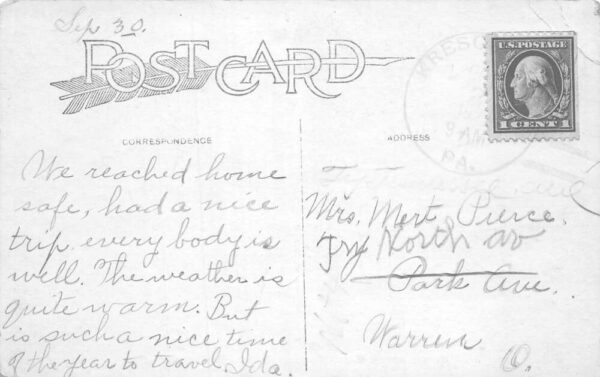 Sep 30.
POST CARD
CRESC
9 AM
PA.
U.S. POSTAGE
1 CENT 1
CORRESPONDENCE
ADDRESS
We reached home
safe, had a nice
trip. every body is
well. The weather is
quite warm. But
is such a nice time
of the year to travel, Ida.
Try ave
Mrs. Mert Pierce.
Try North av
Park Ave.
Warren
O.